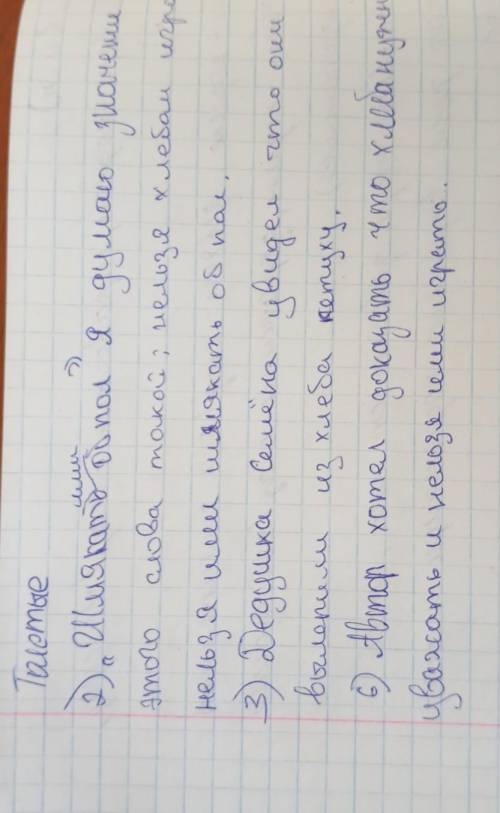 Толстые
2) "Шмякать ими об пол" Я думаю значени
этого слова такой; нельзя хлебом игра
нельзя ими шмякать об пол.
3) Дедушка Семёна увидел что они
вылепили из хлеба петуху.
6) Автор хотел доказать что хлеба нужн
уважать и нельзя ими играть.